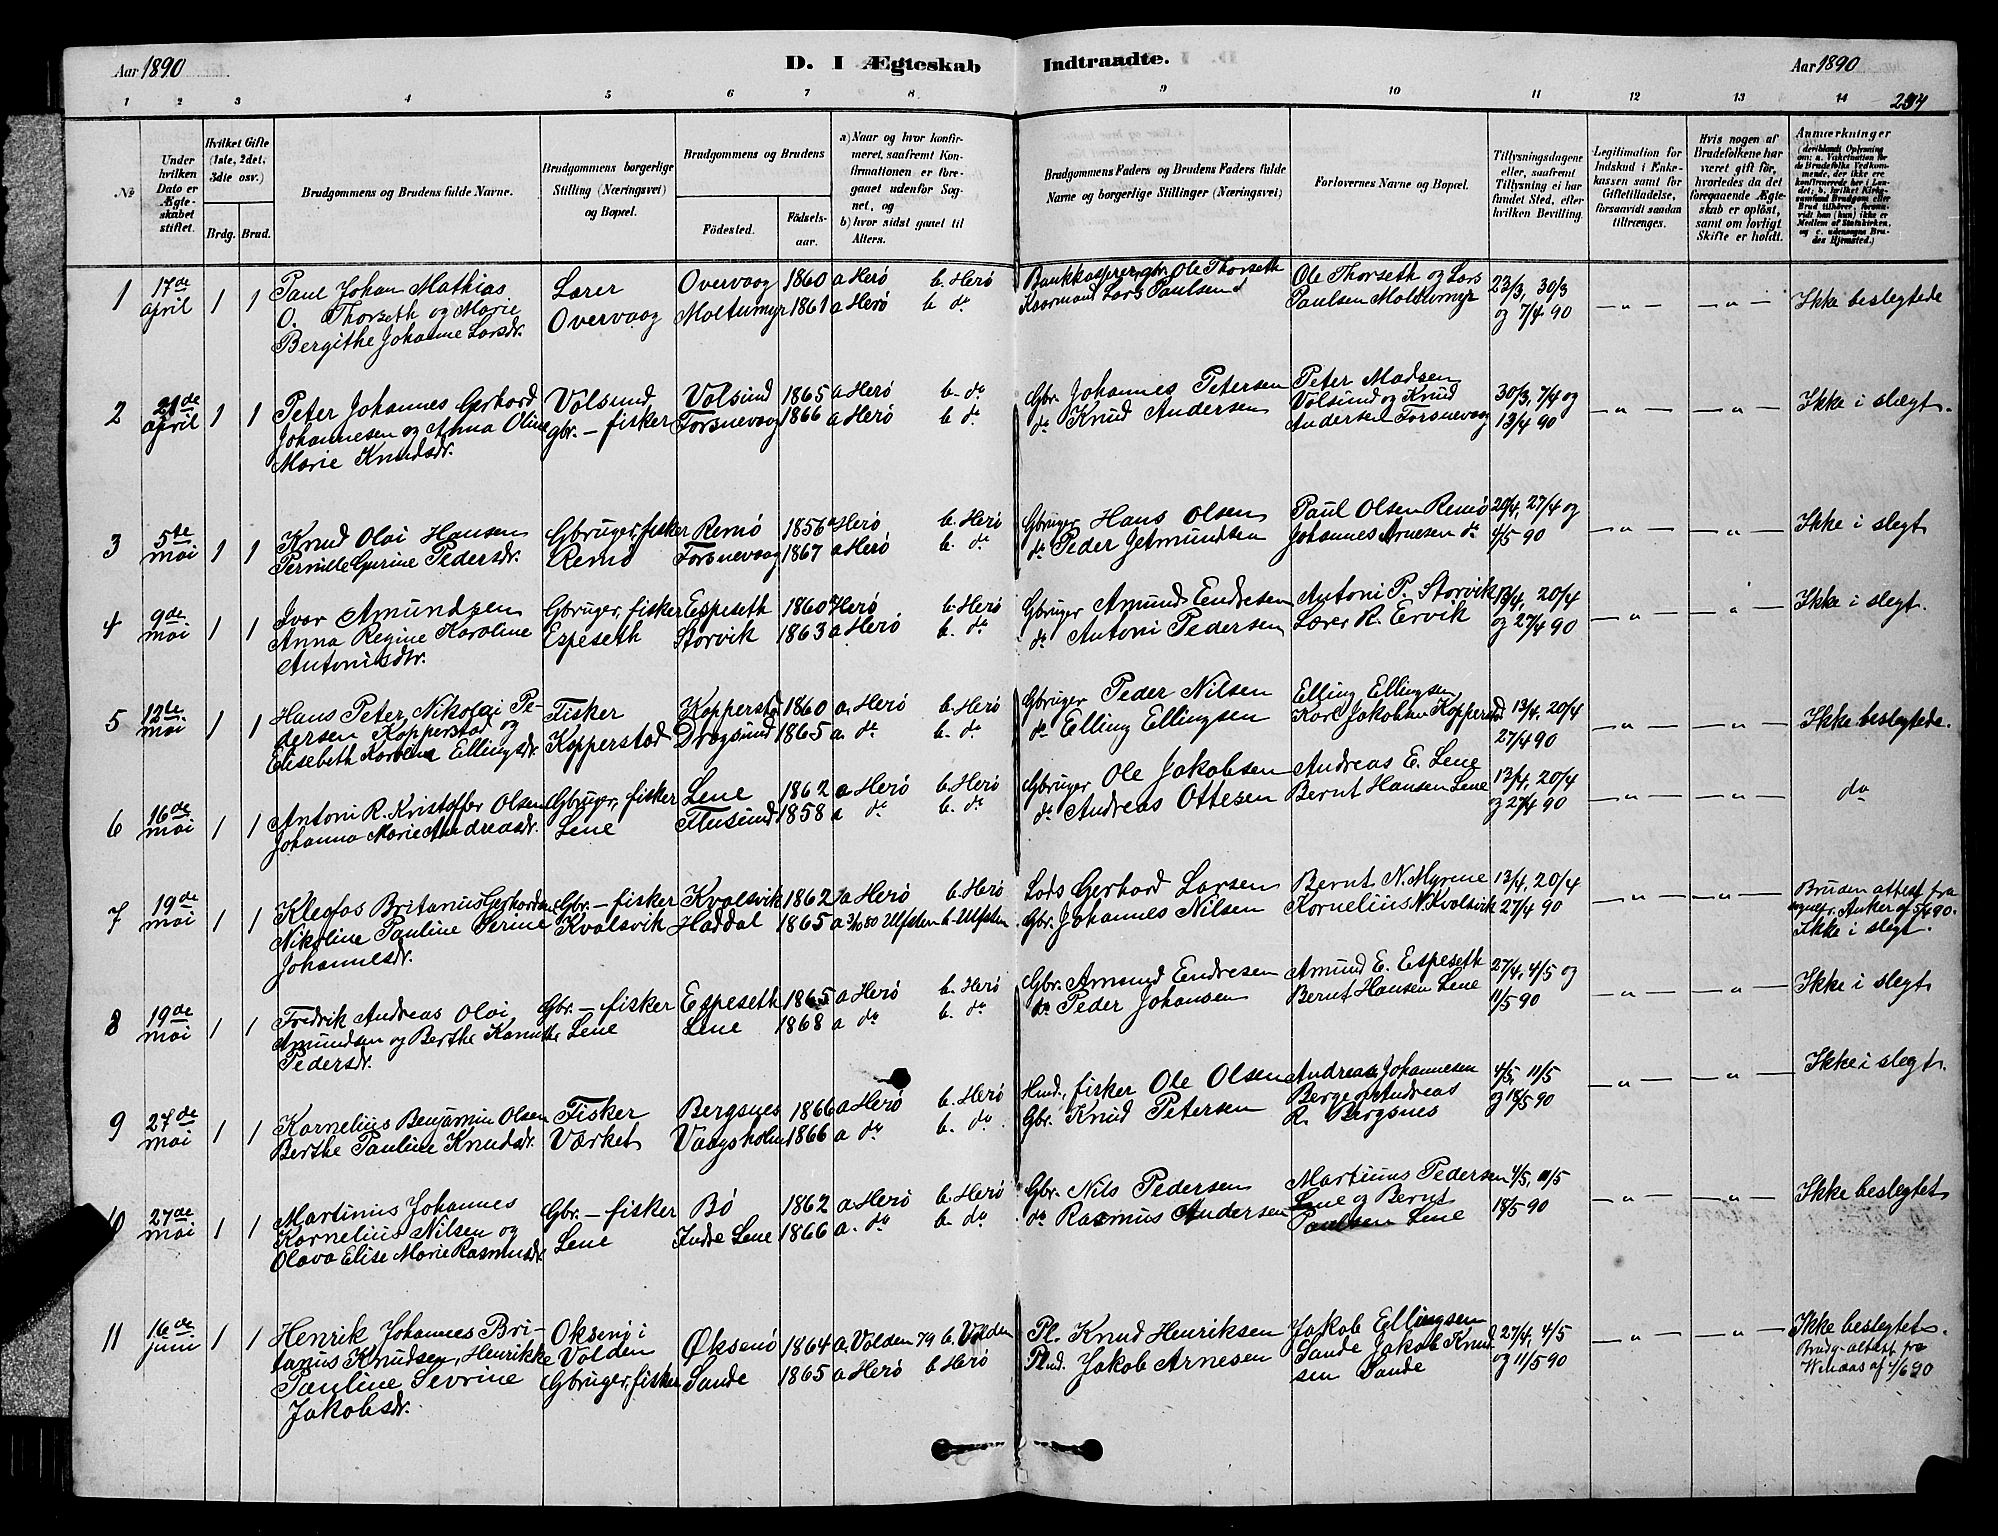 Aar 1890
D. I Ægteskab Indtraadte.
Aar 1890
1 2 3 4 5 6 7 8 9 10 11 12 13 14
234
No
Under hvilken Dato er Ægteskabet stiftet.
Hvilket Gifte (1ste, 2det, 3die osv.)
Brdg. Brud.
Brudgommens og Brudens fulde Navne.
Brudgommens borgerlige Stilling (Næringsvei) og Bopæl.
Brudgommens og Brudens
Fødested. Fødselsaar.
a) Naar og hvor konfirmeret, saafremt Konfirmationen er foregaaet udenfor Sognet, og
b) hvor sidst gaaet til Alters.
Brudgommens Faders og Brudens Faders fulde Navne og borgerlige Stillinger (Næringsvei)
Forlovernes Navne og Bopæl.
Tillysningsdagene eller, saafremt Tillysning ei har fundet Sted, efter hvilken Bevilling.
Legitimation for Indskud i Enkekassen samt for Giftetilladelse, forsaavidt saadan tiltrænges.
Hvis nogen af Brudefolkene har været gift før, hvorledes da det foregaaende Ægteskab er opløst, samt om lovligt Skifte er holdt.
Anmærkninger
(deriblandt Oplysning om: a. Vakcination for de Brudefolks Vedkommende, der ikke ere konfirmerede her i Landet; b. hvilket Kirkesamfund Brudgom eller Brud tilhører, forsaavidt han (hun) ikke er Medlem af Statskirken, og c. udensogns Brudes Hjemsted.)
1 17de april 1 1
Paul Johan Mathias
O. Thorseth og Marie
Bergithe Johanne Larsdr.
Lærer
Overvaag
Overvaag 1860 a Herø b. Herø
Moltumyr 1861 a Herø b do
Bankkasserer, gbr. Ole Thorseth
Lars Paulsen
Ole Thorseth og Lars
Paulsen Moldumyr
23/3, 30/3
og 7/4 90
— " — — " —
Ikke beslegtede
2 21de april 1 1
Peter Johannes Gerhard
Johannesen og Anna Oline
Marie Knudsdr.
Volsund
gbr. – fisker
Volsund 1865 a Herø b. do
Fosnevaag 1866 a Herø b do
Gbr. Johannes Petersen
do Knud Andersen
Peter Madsen
Volsund og Knud
Andersen Fosnevaag
30/3, 7/4 og
13/4 90
— " — — " —
Ikke i slegt.
3 5te mai 1 1
Knud Olai Hansen
Pernille Gurine Pedersdr.
Gbruger, fisker
Remø
Remø 1856 a Herø b. Herø
Fosnevaag 1867 a Herø b. do
Gbruger Hans Olsen
do Peder Jetmundsen
Paul Olsen Remø
Johannes Arnesen do
20/4, 27/4 og
4/5 90
— " — — " —
Ikke i slegt
4 9de mai 1 1
Ivar Amundsen
Anna Regine Karoline
Antonisdtr.
Gbruger, fisker
Espeseth
Espeseth 1860 a Herø b. Herø
Storvik 1863 a Herø b. do
Gbruger Amund Endresen
do Antoni Pedersen
Antoni P. Storvik
Lærer R. Ervik
13/4, 20/4
og 27/4 90
— " — — " —
Ikke i slegt.
5 12te mai 1 1
Hans Peter Nikolai Pe-
dersen Kopperstad og
Elisebeth Ellingsdr.
Fisker
Kopperstad
Kopperstad 1860 a. Herø b. Herø
Dragsund 1865 a. do b. do
Gbruger Peder Nilsen
do Elling Ellingsen
Elling Ellingsen
Karl Jakobsen Kopperstad
13/4, 20/4
27/4 90
— " — — " —
Ikke beslegtede.
6 16de mai 1 1
Antoni R. Kristoffer Olsen
Johanna Marie Andreasdr.
Gbruger, fisker
Lene
Lene 1862 a Herø b Herø
Flusund 1858 a do b. do
Gbruger Ole Jakobsen
do Andreas Ottesen
Andreas E. Lene
Bernt Hansen Lene
13/4, 20/4
og 27/4 90
— " — — " —
do
7 19de mai 1 1
Kleofas Britanus Gerhardsen
Nikoline Pauline Serine
Johannesdr.
Gbr. – fisker
Kvalsvik
Kvalsvik 1862 a Herø b. Herø
Haddal 1865 a 3/10 80 Ulfsten b. Ulfsten
Lods Gerhard Larsen
Gbr. Johannes Nilsen
Bernt N. Myrene
Kornelius N. Kvalsvik
13/4, 20/4
27/4 90
— " — — " —
Bruden attest fra
sognepr. Anker af 5/4 90.
Ikke i slegt.
8 19de mai 1 1
Fredrik Andreas Olai
Amundsen og Berthe Kanutte
Pedersdr.
Gbr. – fisker
Lene
Espeseth 1865 a Herø b. Herø
Lene 1868 a do b. do
Gbr. Amund Endresen
do Peder Johansen
Amund E. Espeseth
Bernt Hansen Lene
27/4, 4/5 og
11/5 90
— " — — " —
Ikke i slegt
9 27de mai 1 1
Kornelius Benjamin Olsen
Berthe Pauline Knudsdr.
Fisker
Værket
Bergsnes 1866 a Herø b. Herø
Vaagsholm 1866 a do b. do
Hmd., fisker Ole Olsen
Gbr. Knud Petersen
Andreas Johannesen
Berge og Andreas
R. Bergsnes
4/5, 11/5
og 18/5 90
— " — — " —
Ikke i slegt.
10 27de mai 1 1
Martinus Johannes
Kornelius Nilsen og
Olava Elise Marie Rasmusdr.
Gbr. – fisker
Lene
Bø 1862 a Herø b. Herø
Indre Lene 1866 a. do b. do
Gbr. Nils Pedersen
do Rasmus Andersen
Martinus Pedersen
Lene og Bernt
Paulsen Lene
4/5, 11/5
18/5 90
— " — — " —
Ikke beslegtet
11 16de juni 1 1
Henrik Johannes Bri-
tanus Knudsen, Henrikke
Pauline Sevrine
Jakobsdr.
Oksenø i
Volden
Gbruger, fisker
Øksenø 1864 a. Volden 79 b. Volden
Sande 1865 a Herø b Herø
Pl. Knud Henriksen
Plmd. Jakob Arnesen
Jakob Ellingsen
Sande Jakob Knud-
sen Sande
27/4, 4/5
og 11/5 90
— " — — " —
Ikke beslegtet.
Brudg. attest fra
Wenaas af 7/6 90